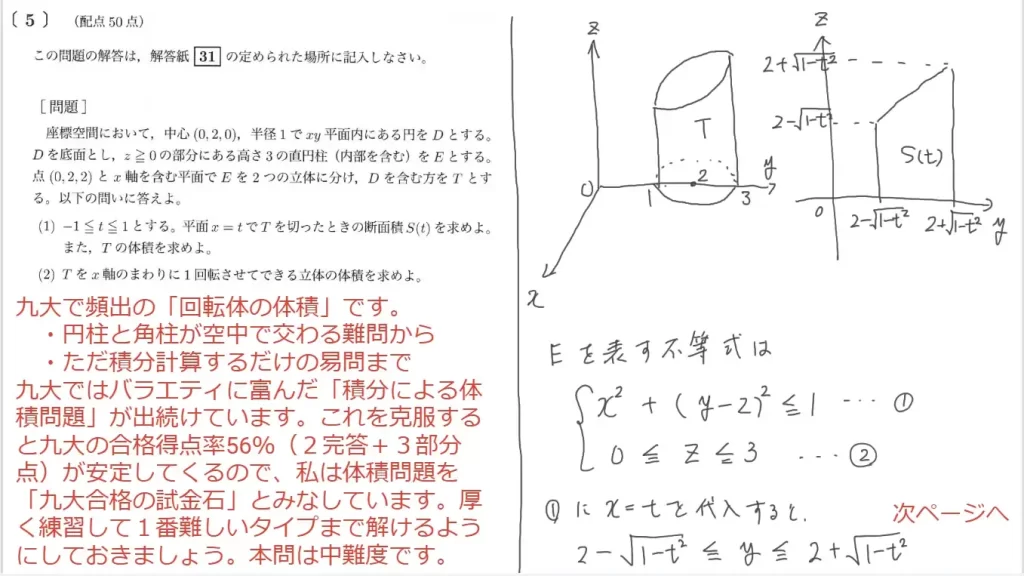 〔 5 〕 （配点 50 点）
この問題の解答は，解答紙 31 の定められた場所に記入しなさい。
［問題］
座標空間において，中心 (0, 2, 0)，半径 1 で xy 平面内にある円を D とする。
D を底面とし，z ≧ 0 の部分にある高さ 3 の直円柱（内部を含む）を E とする。
点 (0, 2, 2) と x 軸を含む平面で E を 2 つの立体に分け，D を含む方を T とす
る。以下の問いに答えよ。
(1) −1 ≦ t ≦ 1 とする。平面 x = t で T を切ったときの断面積 S(t) を求めよ。
また，T の体積を求めよ。
(2) T を x 軸のまわりに 1 回転させてできる立体の体積を求めよ。
九大で頻出の「回転体の体積」です。
・円柱と角柱が空中で交わる難問から
・ただ積分計算するだけの易問まで
九大ではバラエティに富んだ「積分による体
積問題」が出続けています。これを克服する
と九大の合格得点率56%（２完答＋３部分
点）が安定してくるので、私は体積問題を
「九大合格の試金石」とみなしています。厚
く練習して１番難しいタイプまで解けるよう
にしておきましょう。本問は中難度です。
z
T
y
0
1
2
3
x
z
2+√1-t²
2-√1-t²
S(t)
0
2-√1-t²
2+√1-t²
y
Eを表す不等式は
x² + (y-2)² ≦ 1 … ①
0 ≦ z ≦ 3 … ②
①に x=tを代入すると、
2-√1-t² ≦ y ≦ 2+√1-t²
次ページへ